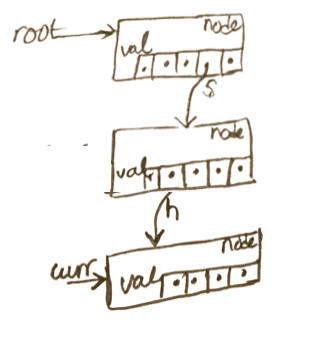 root
node
val
s
node
val
h
node
curr
val